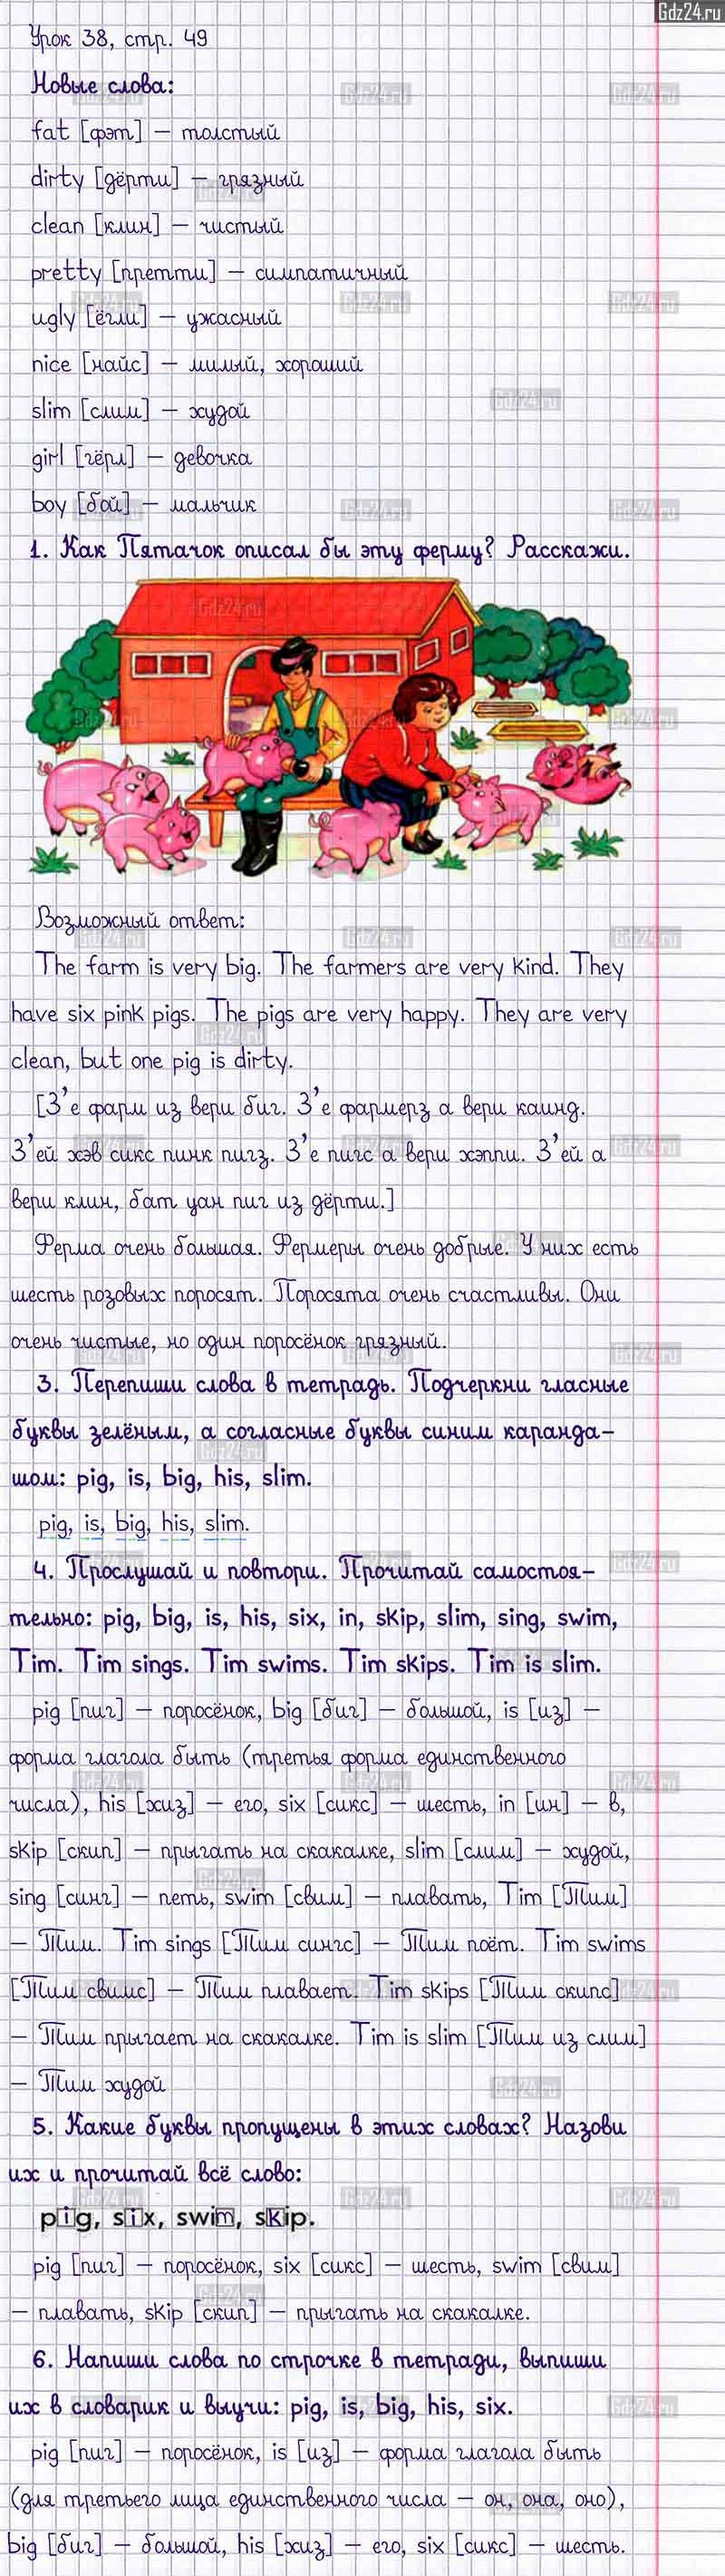 Gdz24.ru
Урок 38, стр. 49
Новые слова:
fat [фэт] – толстый
dirty [дёрти] – грязный
clean [клин] – чистый
pretty [претти] – симпатичный
ugly [ёгли] – ужасный
nice [найс] – милый, хороший
slim [слим] – худой
girl [гёрл] – девочка
boy [бой] – мальчик
1. Как Пятачок описал бы эту ферму? Расскажи.
Возможный ответ:
The farm is very big. The farmers are very kind. They
have six pink pigs. The pigs are very happy. They are very
clean, but one pig is dirty.
[З’е фарм из вери биг. З’е фармерз а вери каинд.
З’ей хэв сикс пинк пигз. З’е пигс а вери хэппи. З’ей а
вери клин, бат уан пиг из дёрти.]
Ферма очень большая. Фермеры очень добрые. У них есть
шесть розовых поросят. Поросята очень счастливы. Они
очень чистые, но один поросёнок грязный.
3. Перепиши слова в тетрадь. Подчеркни гласные
буквы зелёным, а согласные буквы синим каранда-
шом: pig, is, big, his, slim.
pig, is, big, his, slim.
4. Прослушай и повтори. Прочитай самостоя-
тельно: pig, big, is, his, six, in, skip, slim, sing, swim,
Tim. Tim sings. Tim swims. Tim skips. Tim is slim.
pig [пиг] – поросёнок, big [биг] – большой, is [из] –
форма глагола быть (третья форма единственного
числа), his [хиз] – его, six [сикс] – шесть, in [ин] – в,
skip [скип] – прыгать на скакалке, slim [слим] – худой,
sing [синг] – петь, swim [свим] – плавать, Tim [Тим]
– Тим. Tim sings [Тим сингс] – Тим поёт. Tim swims
[Тим свимс] – Тим плавает. Tim skips [Тим скипс]
– Тим прыгает на скакалке. Tim is slim [Тим из слим]
– Тим худой
5. Какие буквы пропущены в этих словах? Назови
их и прочитай всё слово:
pig, six, swim, skip.
pig [пиг] – поросёнок, six [сикс] – шесть, swim [свим]
– плавать, skip [скип] – прыгать на скакалке.
6. Напиши слова по строчке в тетради, выпиши
их в словарик и выучи: pig, is, big, his, six.
pig [пиг] – поросёнок, is [из] – форма глагола быть
(для третьего лица единственного числа – он, она, оно),
big [биг] – большой, his [хиз] – его, six [сикс] – шесть.